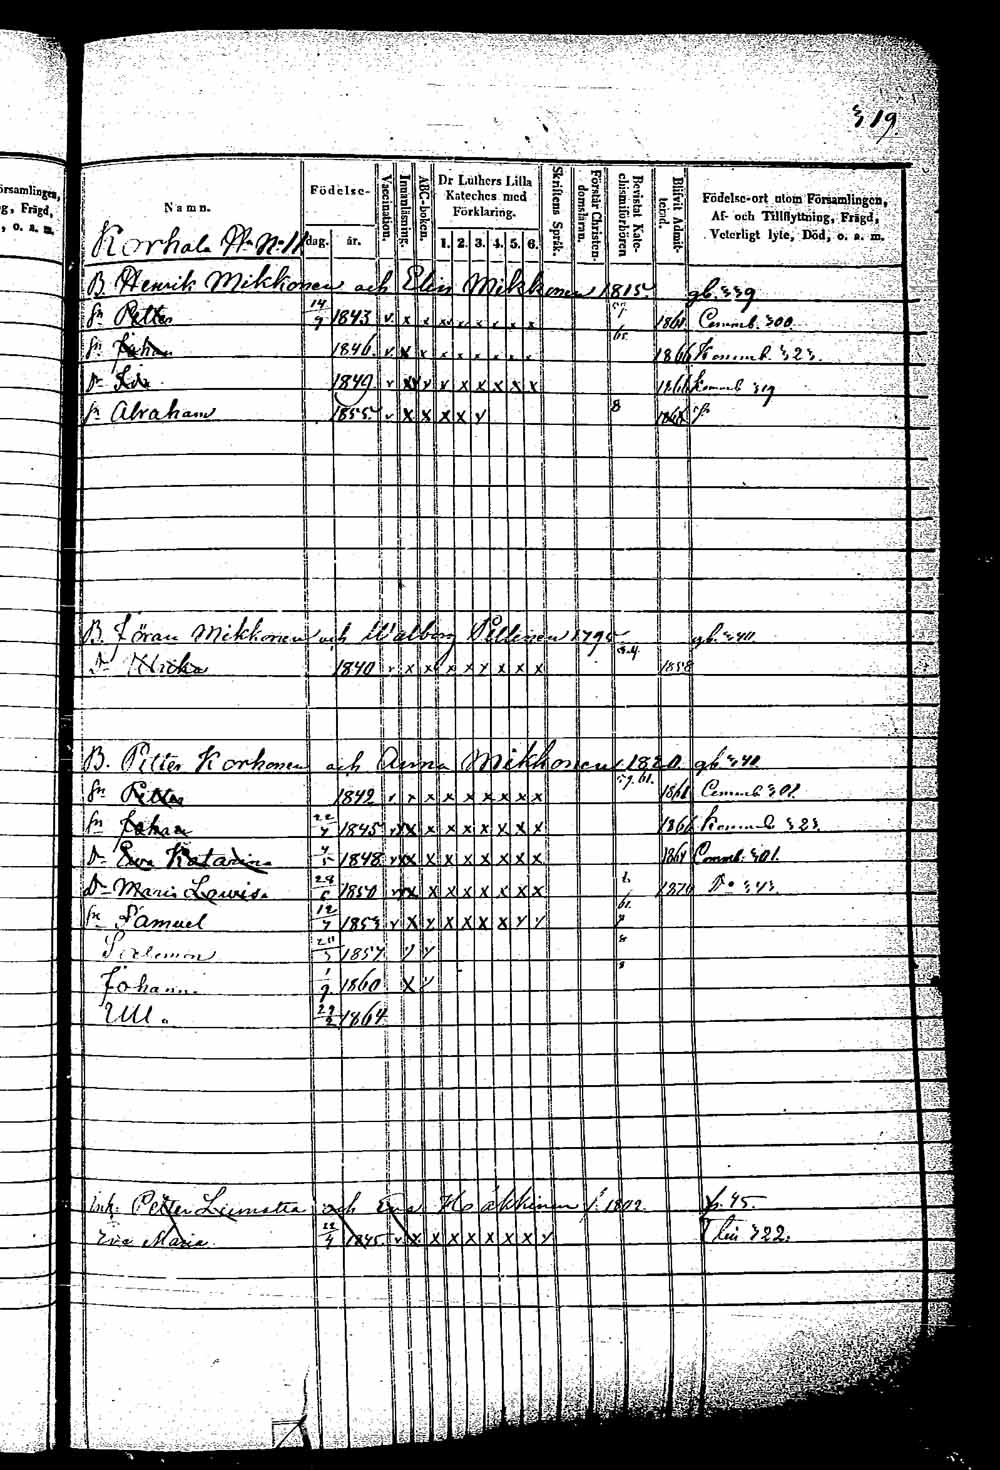 319.
örsamlingen,
g, Frägd,
, o. a. m.
Namn.
Födelse-
dag.
år.
Vaccination.
Innanläsning.
ABC-boken.
Dr Luthers Lilla
Kateches med
Förklaring.
1. 2. 3. 4. 5. 6.
Skriftens Språk.
Förstår Christen-
domsläran.
Bevistat Kate-
chismiförhören
Blifvit Admit-
terad.
Födelse-ort utom Församlingen,
Af- och Tillflyttning, Frägd,
Veterligt lyte, Död, o. a. m.
Korhola No 11
B. Henrik Mikkonen och Elin Mikkonen 1815. gb. 339
Sn Petter 14/9 1843 v x x x x x x x x 1861 Commb. 300.
Sn Johan 1846 v x x x x x x x x 1866 Kommb. 323.
Dr 1849 v x v v x x x x x 1866 Kommb 319
Sn Abraham 1855 v x x x x v 8
B. Jöran Mikkonen och Walborg Pellinen 1795 gb. 340.
Dr Ulrika 1840 v x x x x x x x x 1858
B. Petter Korhonen och Anna Mikkonen 1820. gb 340.
Sn Petter 1842 v x x x x x x x x 1861 Commb 301.
Sn Johan 22/7 1845 v x x x x x x x x 1866 Kommb 323.
Dr Ewa Katarina 4/5 1848 v x x x x x x x x 1864 Commb. 301.
Dr Maria Lovisa 28/6 1850 v x x x x x x x x 1870 Do 343.
Sn Samuel 12/7 1853 v x v x x x x v v
Salomon 1857 v v
Johann 1/9 1860 x v
Ull. 29/2 1864
Ink. Petter Liimatta och Eva Häkkinen f. 1802. 45.
Eva Maria 22/4 1845. v x x x x x x x v 322.